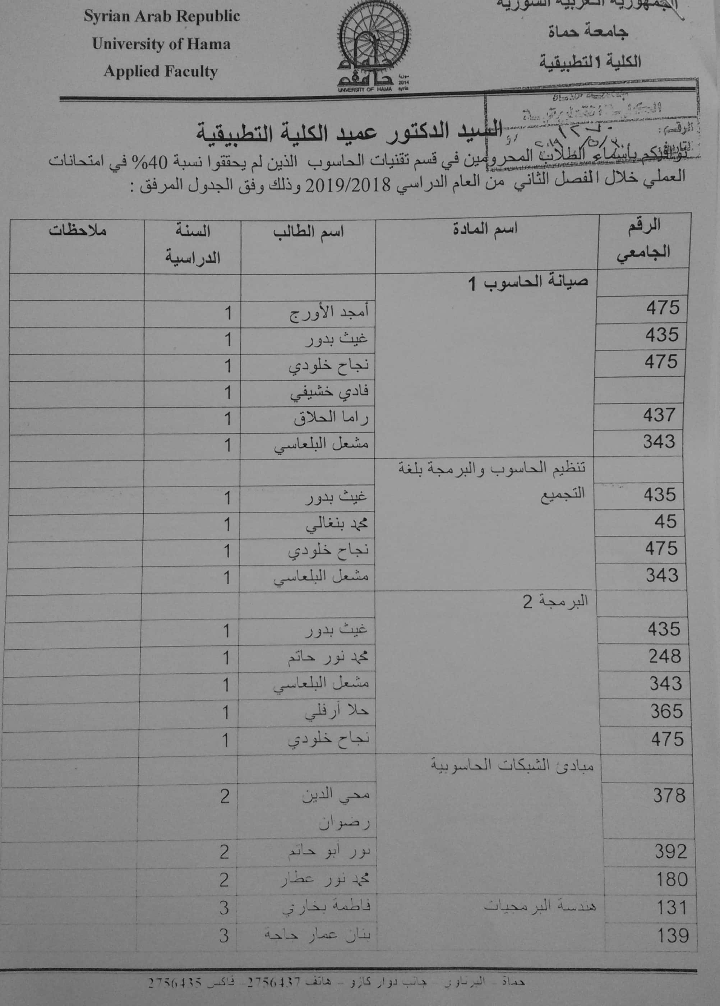 Syrian Arab Republic
University of Hama
Applied Faculty
الجمهورية العربية السورية
جامعة حماة
الكلية التطبيقية
UNIVERSITY OF HAMA
السيد الدكتور عميد الكلية التطبيقية
نوافيكم بأسماء الطلاب المحرومين في قسم تقنيات الحاسوب الذين لم يحققوا نسبة 40% في امتحانات
العملي خلال الفصل الثاني من العام الدراسي 2019/2018 وذلك وفق الجدول المرفق :
الرقم الجامعي اسم المادة اسم الطالب السنة الدراسية ملاحظات
صيانة الحاسوب 1
475 أمجد الأورج 1
435 غيث بدور 1
475 نجاح خلودي 1
فادي خشيفي 1
437 راما الحلاق 1
343 مشعل البلعاسي 1
تنظيم الحاسوب والبرمجة بلغة
التجميع
435 غيث بدور 1
45 محمد بنغالي 1
475 نجاح خلودي 1
343 مشعل البلعاسي 1
البرمجة 2
435 غيث بدور 1
248 محمد نور حاتم 1
343 مشعل البلعاسي 1
365 حلا أرفلي 1
475 نجاح خلودي 1
مبادئ الشبكات الحاسوبية
378 محي الدين 2
رضوان
392 نور ابو حاتم 2
180 محمد نور عطار 2
131 هندسة البرمجيات فاطمة بخاري 3
139 بنان عمار حاجة 3
حماة - البرناوي - جانب دوار كازو - هاتف 2756437- فاكس 2756435